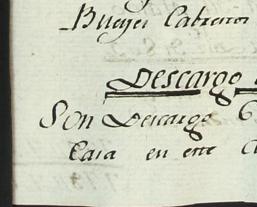 Bueyes Cabrestos
Descargo
Son Descargo
Casa en este